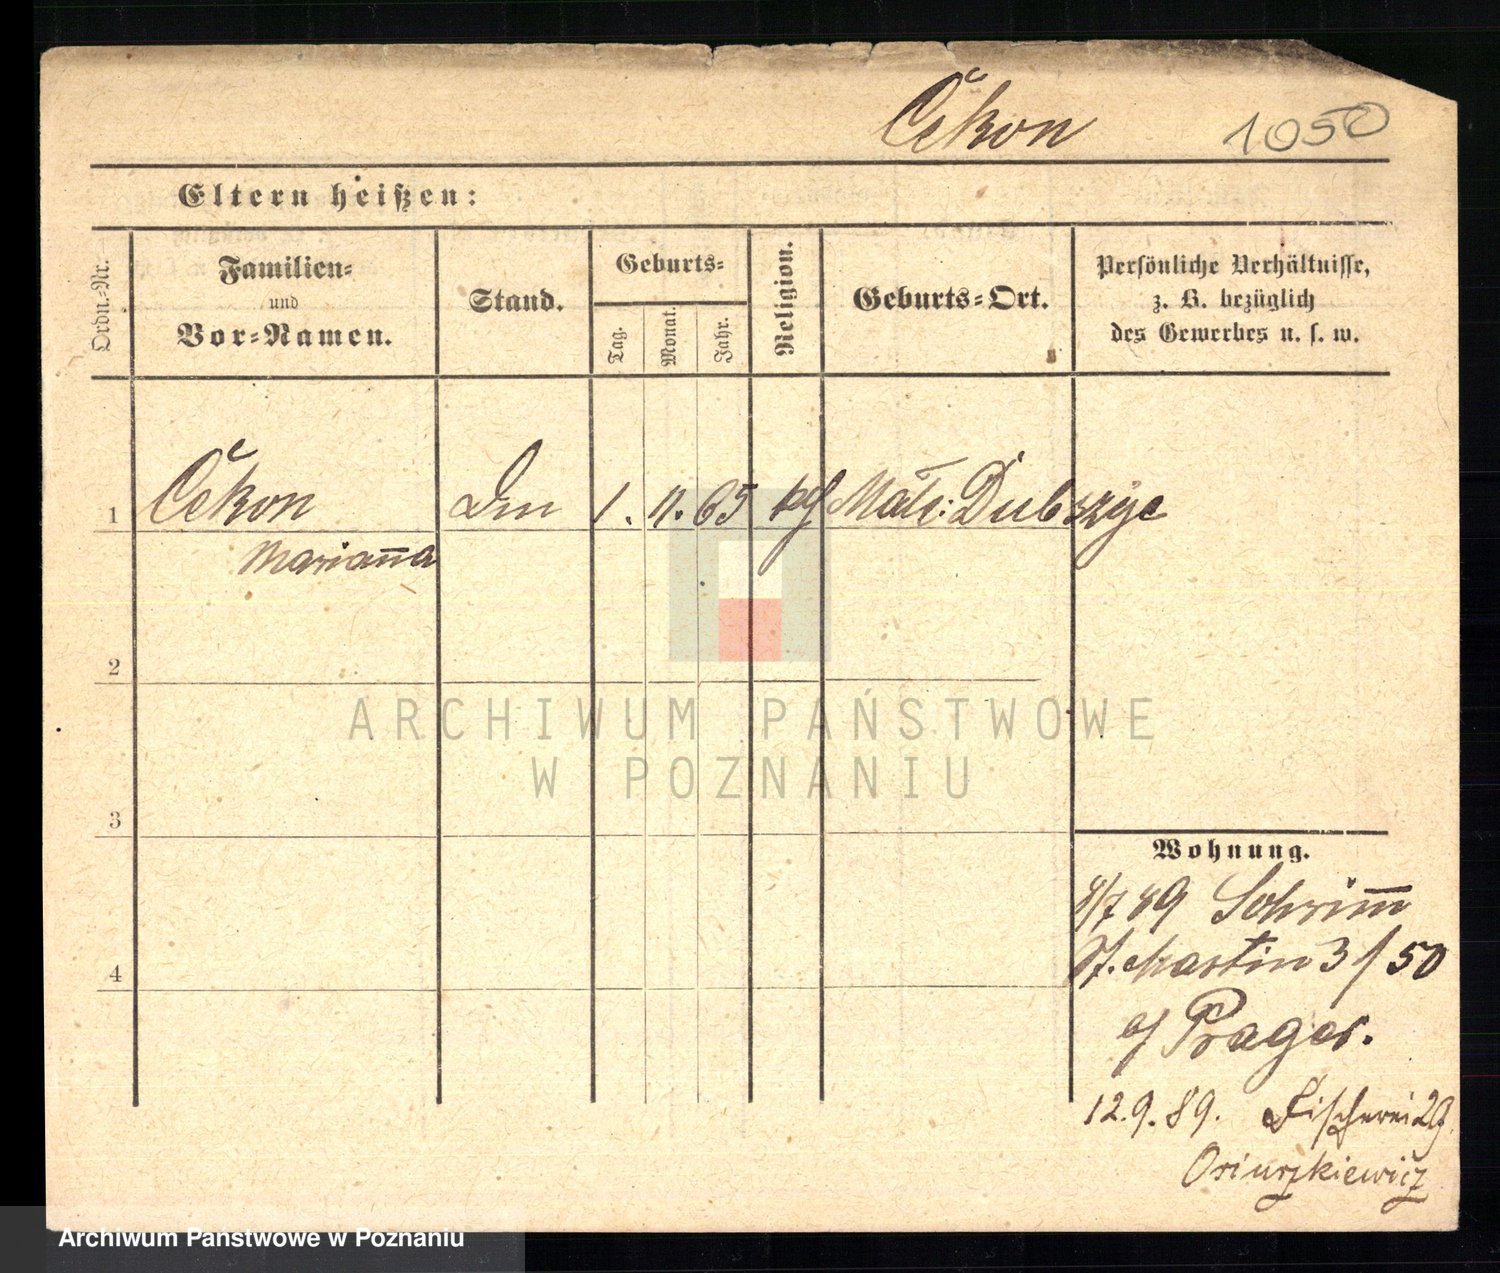 Čekon 1050
Eltern heißen:
Ordn.-Nr.
Familien-
und
Vor-Namen.
Stand.
Geburts-
Tag.
Monat.
Jahr.
Religion.
Geburts-Ort.
Persönliche Verhältnisse,
z. B. bezüglich
des Gewerbes u. s. w.
1 Čekon 1. 11. 65
Marian̅a
2
3
4
ARCHIWUM PAŃSTWOWE
W POZNANIU
Wohnung.
8/7 89 Schrim̅
St. Martin 3 / 50
Prager.
12.9.89. Fischerei 29.
Osiuszkiewicz
Archiwum Państwowe w Poznaniu